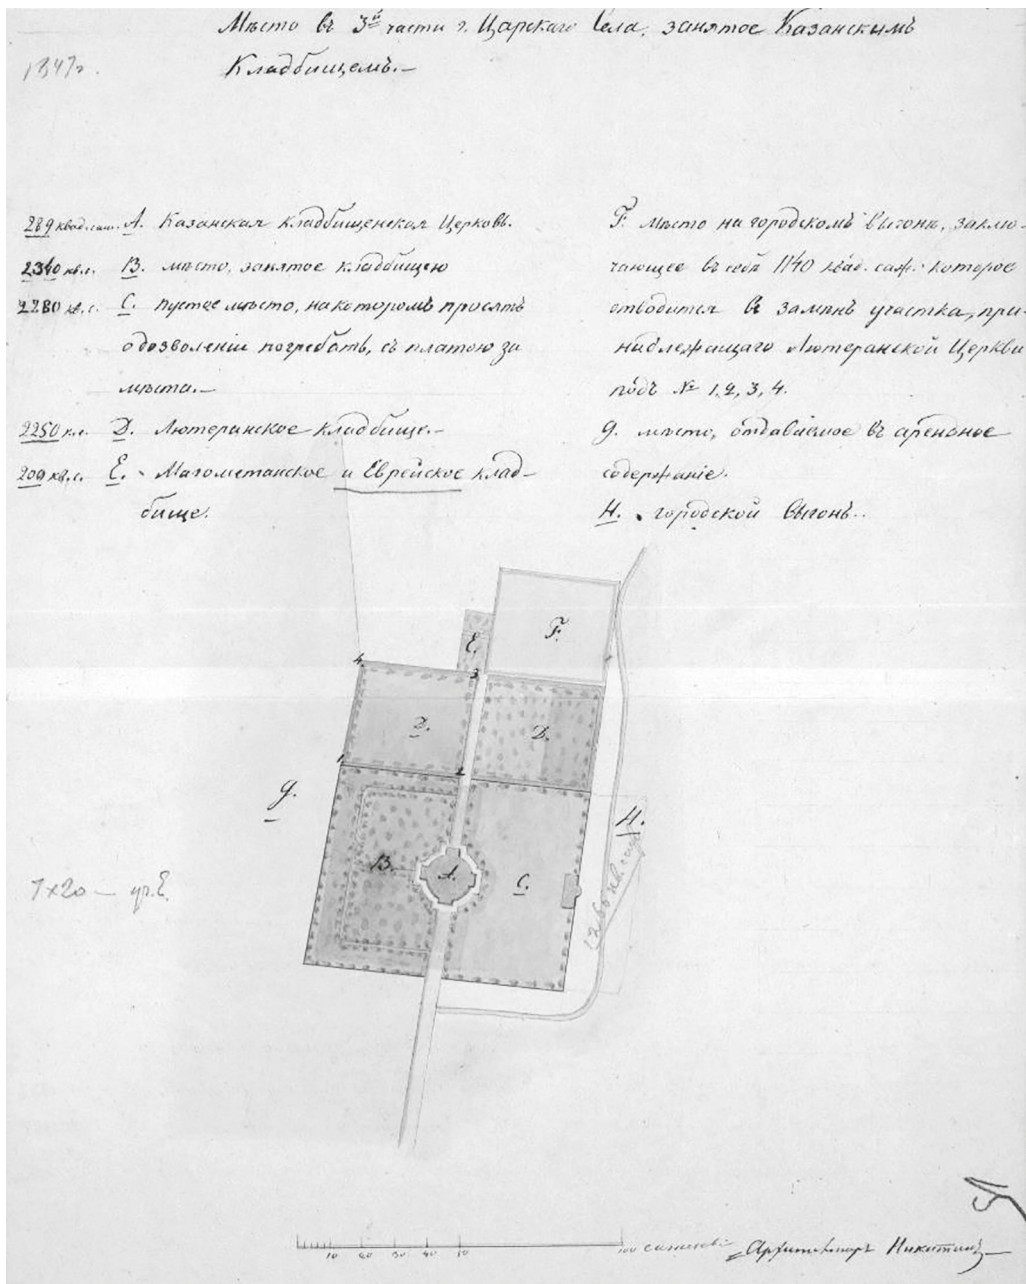 Мѣсто въ 3й части г. Царскаго Села, занятое Казанскимъ
Кладбищемъ.-
1847г.
289 квад. саж. А. Казанская кладбищенская Церковь.
2340 кв.с. В. мѣсто, занятое кладбищею
2280 кв.с. С. пустое мѣсто, на которомъ просятъ
о дозволеніи погребать, съ платою за
мѣста.-
2250 к.с. D. Лютеранское кладбище.-
200 кв.с. Е. Магометанское и Еврейское клад-
бище.
F. мѣсто на городскомъ выгонѣ, заклю-
чающее въ себѣ 1140 квад. саж. которое
отводится въ замѣнъ участка, при-
надлежащаго Лютеранской Церкви
подъ № 1, 2, 3, 4.
g. мѣсто, отдаваемое въ арендное
содержаніе.
H. городской выгонъ..
F.
E.
4.
3
D.
D.
1
2
g.
H.
B.
A.
C.
1260 кв. саж.
7x20 — уч. Е.
10 20 30 40 50 100 саженей
Архитекторъ Никитинъ